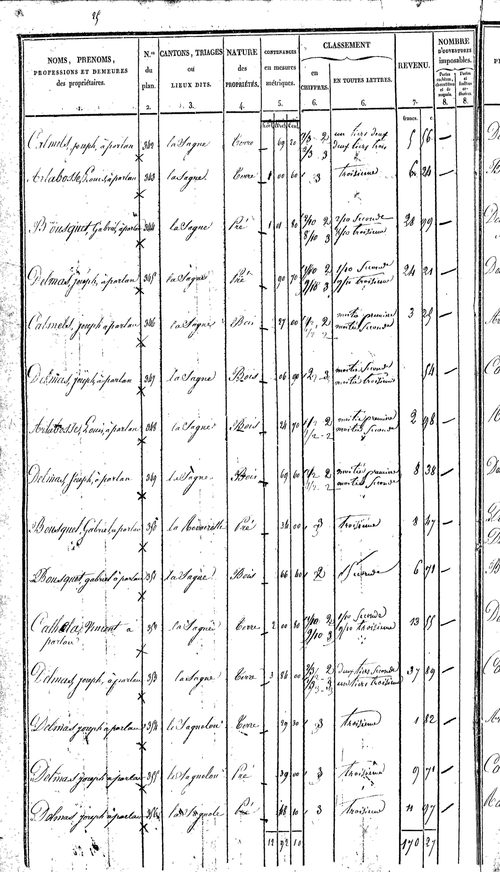 NOMS, PRENOMS, PROFESSIONS ET DEMEURES des propriétaires. 1.
N.os du plan. 2.
CANTONS, TRIAGES ou LIEUX DITS. 3.
NATURE des PROPRIÉTÉS. 4.
CONTENANCES en mesures métriques. 5.
CLASSEMENT
en CHIFFRES. 6.
EN TOUTES LETTRES. 6.
REVENU. 7.
NOMBRE D'OUVERTURES imposables.
8. 8.
francs. c.
Calmels, joseph, à parlan 342 la Sagne Terre 69 20 1/3 2 un tiers deux 5 56
2/3 3 deux tiers trois
Arlabosse, Louis, à parlan 343 la Sagne Terre 1 00 60 3 troisième 6 24
Bousquet, Gabriel, à parlan 344 la Sagne Pré 1 01 80 2/10 2 2/10 seconde 28 99
8/10 3 8/10 troisième
Delmas, joseph, à parlan 345 la Sagne Pré 90 70 1/10 2 1/10 seconde 24 21
9/10 3 9/10 troisième
Calmels, joseph à parlan 346 la Sagne Bois 27 00 moitié première 3 25
moitié seconde
Delmas, joseph, à parlan 347 la Sagne Bois 06 moitié seconde 54
moitié troisième
Arlabosse, Louis, à parlan 348 la Sagne Bois 24 70 moitié première 2 98
moitié seconde
Delmas, joseph, à parlan 349 la Sagne Bois 69 60 moitié première 8 38
moitié seconde
Bousquet, Gabriel à parlan 350 la Pré 34 00 3 troisième 8 47
Bousquet, gabriel à parlan 351 la Sagne Bois 66 60 2 Seconde 6 71
Vincent à parlan 352 la Sagne Terre 2 00 80 1/10 2 1/10 seconde 13 55
9/10 3 9/10 troisième
Delmas, joseph, à parlan 353 la Sagne Terre 3 86 00 2/3 2 deux tiers seconde 37 89
1/3 3 un tiers troisième
Delmas joseph à parlan 354 le Sagnelou Terre 29 30 3 troisième 1 82
Delmas joseph à parlan 355 le Sagnelou Pré 39 00 3 troisième 9 71
Delmas joseph à parlan 356 Pré 48 10 3 troisième 11 97
12 92 10 170 27